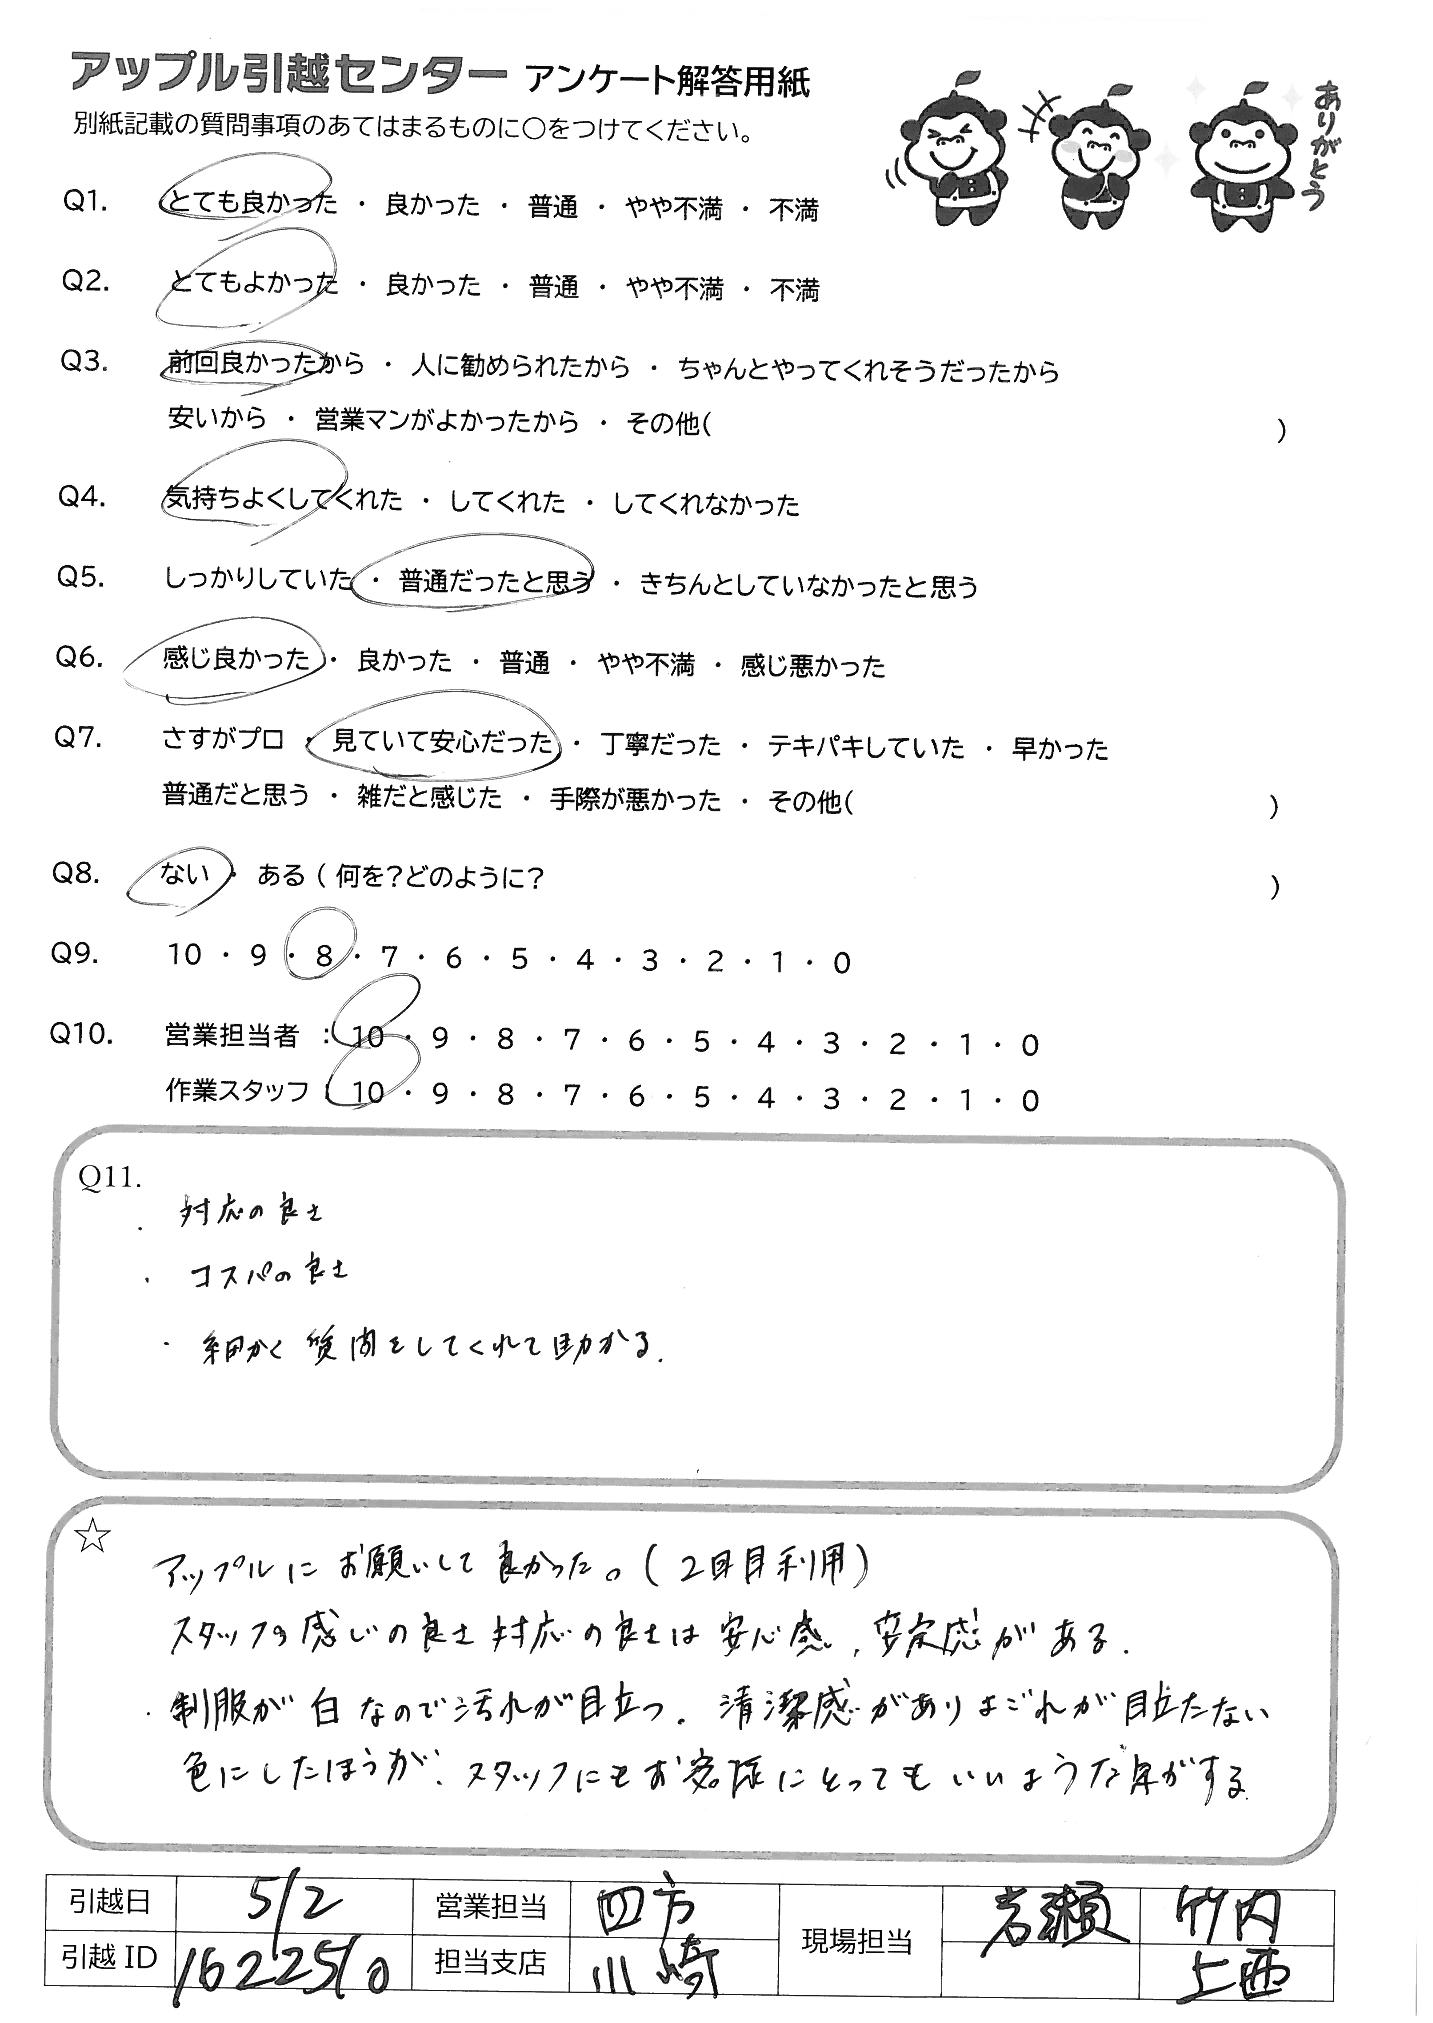 アップル引越センター アンケート解答用紙
別紙記載の質問事項のあてはまるものに○をつけてください。
ありがとう
Q1. とても良かった ・ 良かった ・ 普通 ・ やや不満 ・ 不満
Q2. とてもよかった ・ 良かった ・ 普通 ・ やや不満 ・ 不満
Q3. 前回良かったから ・ 人に勧められたから ・ ちゃんとやってくれそうだったから
安いから ・ 営業マンがよかったから ・ その他( )
Q4. 気持ちよくしてくれた ・ してくれた ・ してくれなかった
Q5. しっかりしていた ・ 普通だったと思う ・ きちんとしていなかったと思う
Q6. 感じ良かった ・ 良かった ・ 普通 ・ やや不満 ・ 感じ悪かった
Q7. さすがプロ ・ 見ていて安心だった ・ 丁寧だった ・ テキパキしていた ・ 早かった
普通だと思う ・ 雑だと感じた ・ 手際が悪かった ・ その他( )
Q8. ない ・ ある ( 何を?どのように? )
Q9. 10 ・ 9 ・ 8 ・ 7 ・ 6 ・ 5 ・ 4 ・ 3 ・ 2 ・ 1 ・ 0
Q10. 営業担当者 : 10 ・ 9 ・ 8 ・ 7 ・ 6 ・ 5 ・ 4 ・ 3 ・ 2 ・ 1 ・ 0
作業スタッフ : 10 ・ 9 ・ 8 ・ 7 ・ 6 ・ 5 ・ 4 ・ 3 ・ 2 ・ 1 ・ 0
Q11.
・ 対応の良さ
・ コスパの良さ
・ 細かく質問をしてくれて助かる.
☆
アップルにお願いして良かった。(2回目利用)
スタッフの感じの良さ 対応の良さは安心感、安定感がある.
・制服が白なので汚れが目立つ. 清潔感がありよごれが目立たない
色にしたほうが、スタッフにもお客様にとってもいいような気がする
引越日 5/2 営業担当 四方 現場担当 岩瀬 竹内
引越 ID 1622510 担当支店 川崎 上西